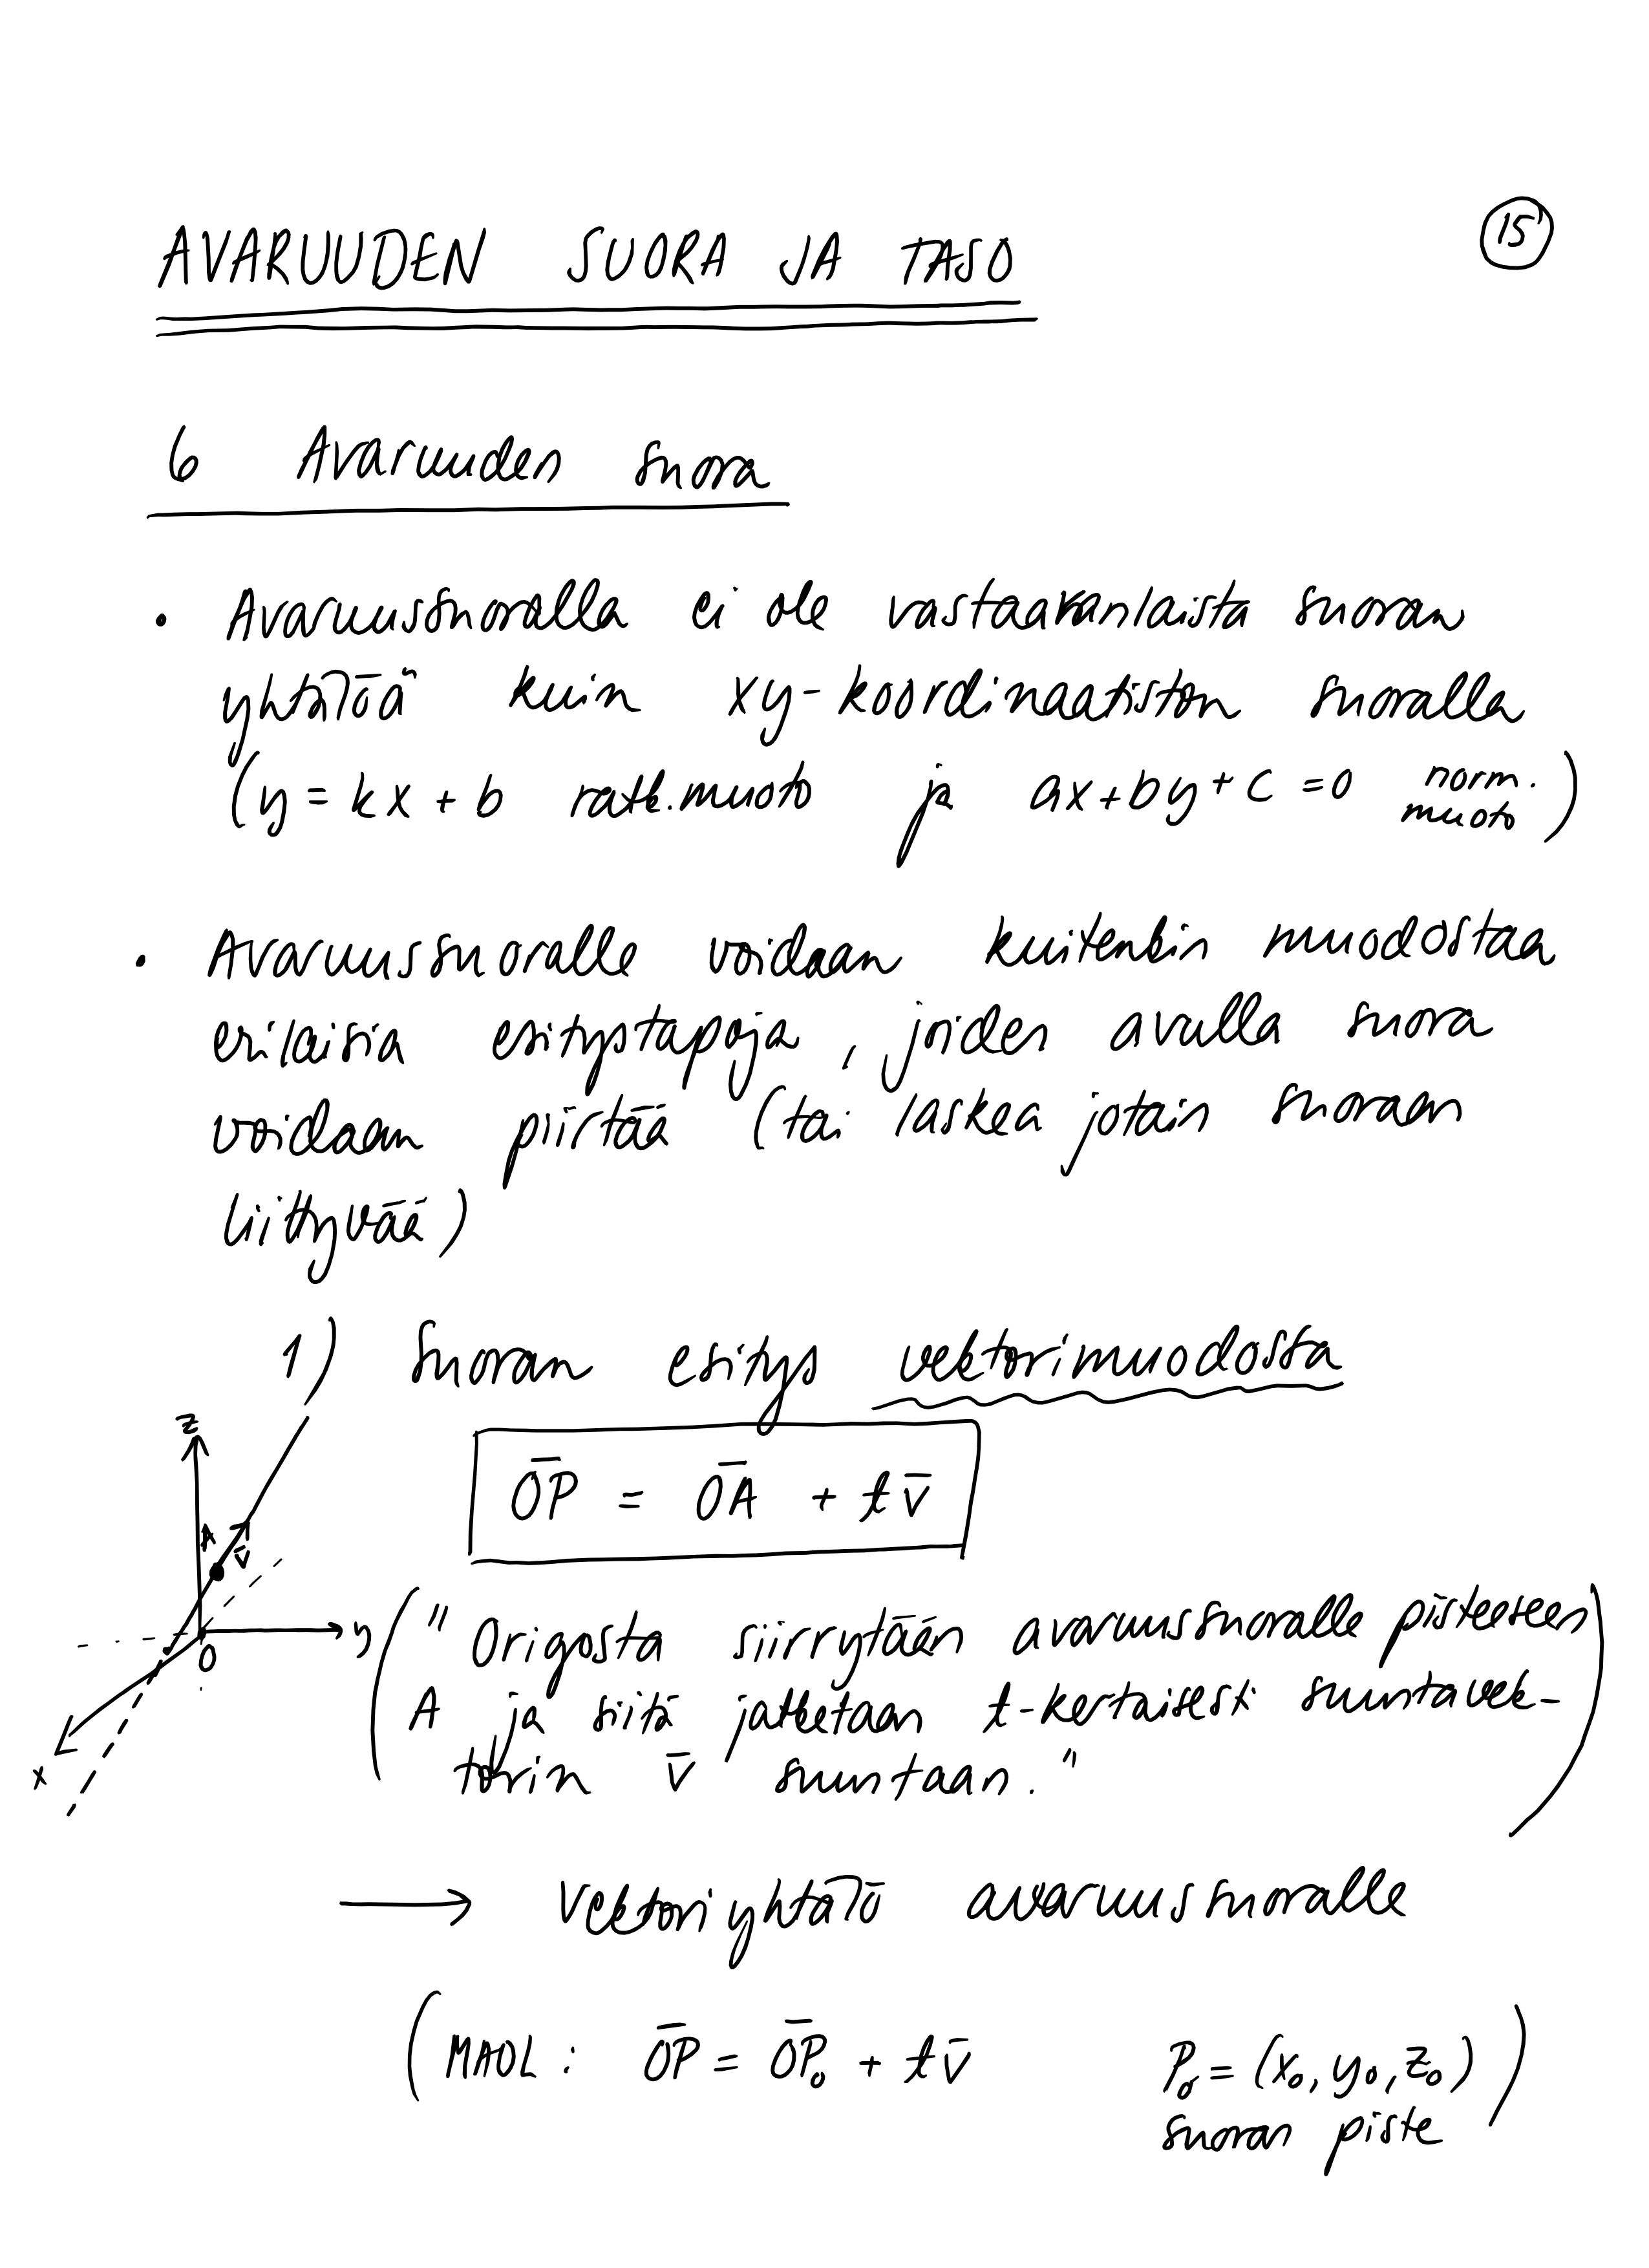 AVARUUDEN SUORA JA TASO
15
6 Avaruuden suora
• Avaruussuoralla ei ole vastaavanlaista suoran
yhtälöä kuin xy-koordinaatiston suoralla
(y = kx + b ratk.muoto ja ax+by+c=0 norm. muoto)
• Avaruussuoralle voidaan kuitenkin muodostaa
erilaisia esitystapoja, joiden avulla suora
voidaan piirtää (tai laskea jotain suoraan
liittyvää)
1) Suoran esitys vektorimuodossa
z
A
v̄
y
O
x
O̅P̅ = O̅A̅ + t v̄
("Origosta siirrytään avaruussuoralle pisteeseen
A ja siitä jatketaan t-kertaisesti suuntavek-
torin v̄ suuntaan.")
→ Vektoriyhtälö avaruussuoralle
(MAOL: O̅P̅ = O̅P̅₀ + t v̄ P₀ = (x₀, y₀, z₀)
suoran piste)